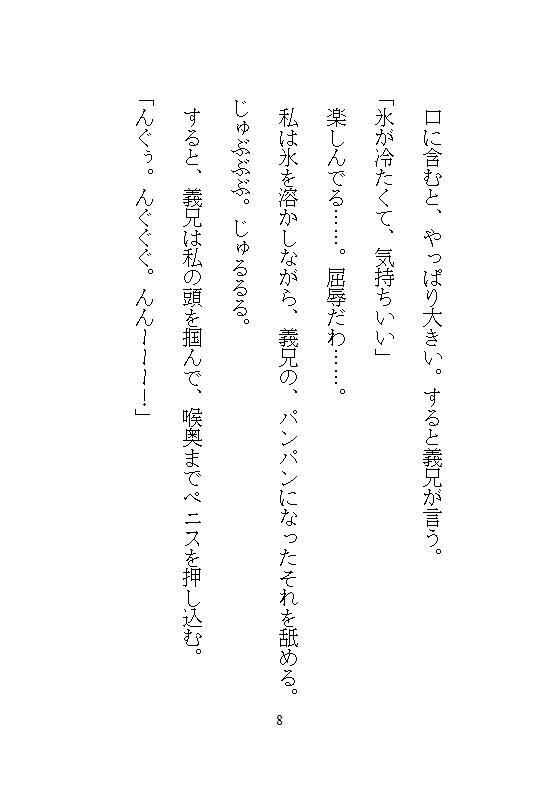 口に含むと、やっぱり大きい。すると義兄が言う。
「氷が冷たくて、気持ちいい」
楽しんでる……。屈辱だわ……。
私は氷を溶かしながら、義兄の、パンパンになったそれを舐める。
じゅぶぶぶ。じゅるるる。
すると、義兄は私の頭を掴んで、喉奥までペニスを押し込む。
「んぐぅ。んぐぐぐ。んん～～～！」
8